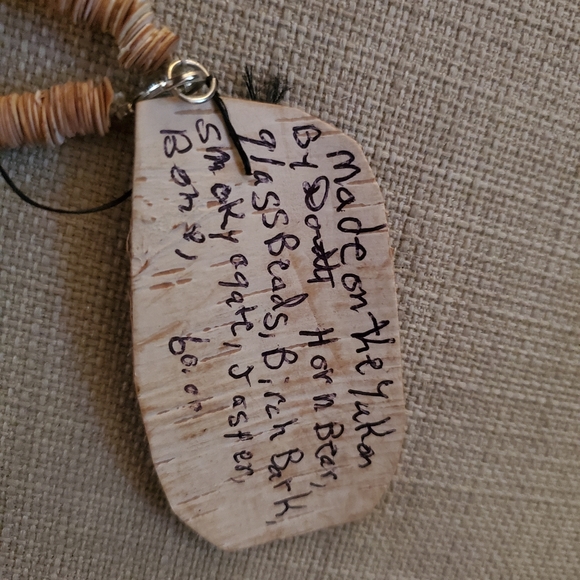 made on the Yukon
By Horn Bear,
glass Beads, Birch Bark,
smoky agate, Jasper,
Bone,